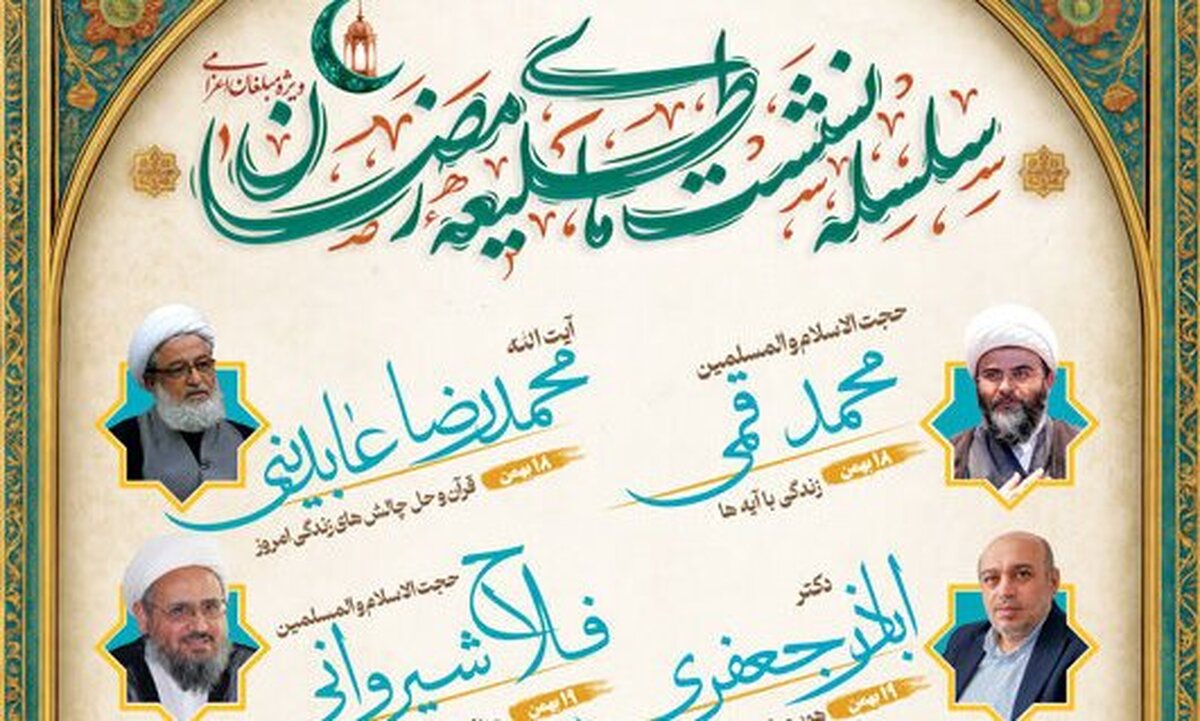 سلسله نشست های طلیعه رمضان
ویژه مبلغان اعزامی
حجت الاسلام والمسلمین
محمد قمی
۱۸ بهمن
زندگی با آیه ها
آیت الله
محمدرضا عابدینی
۱۸ بهمن
قرآن و حل چالش های زندگی امروز
دکتر
جعفری
۱۹ بهمن
حجت الاسلام والمسلمین
فلاح شیروانی
۱۹ بهمن